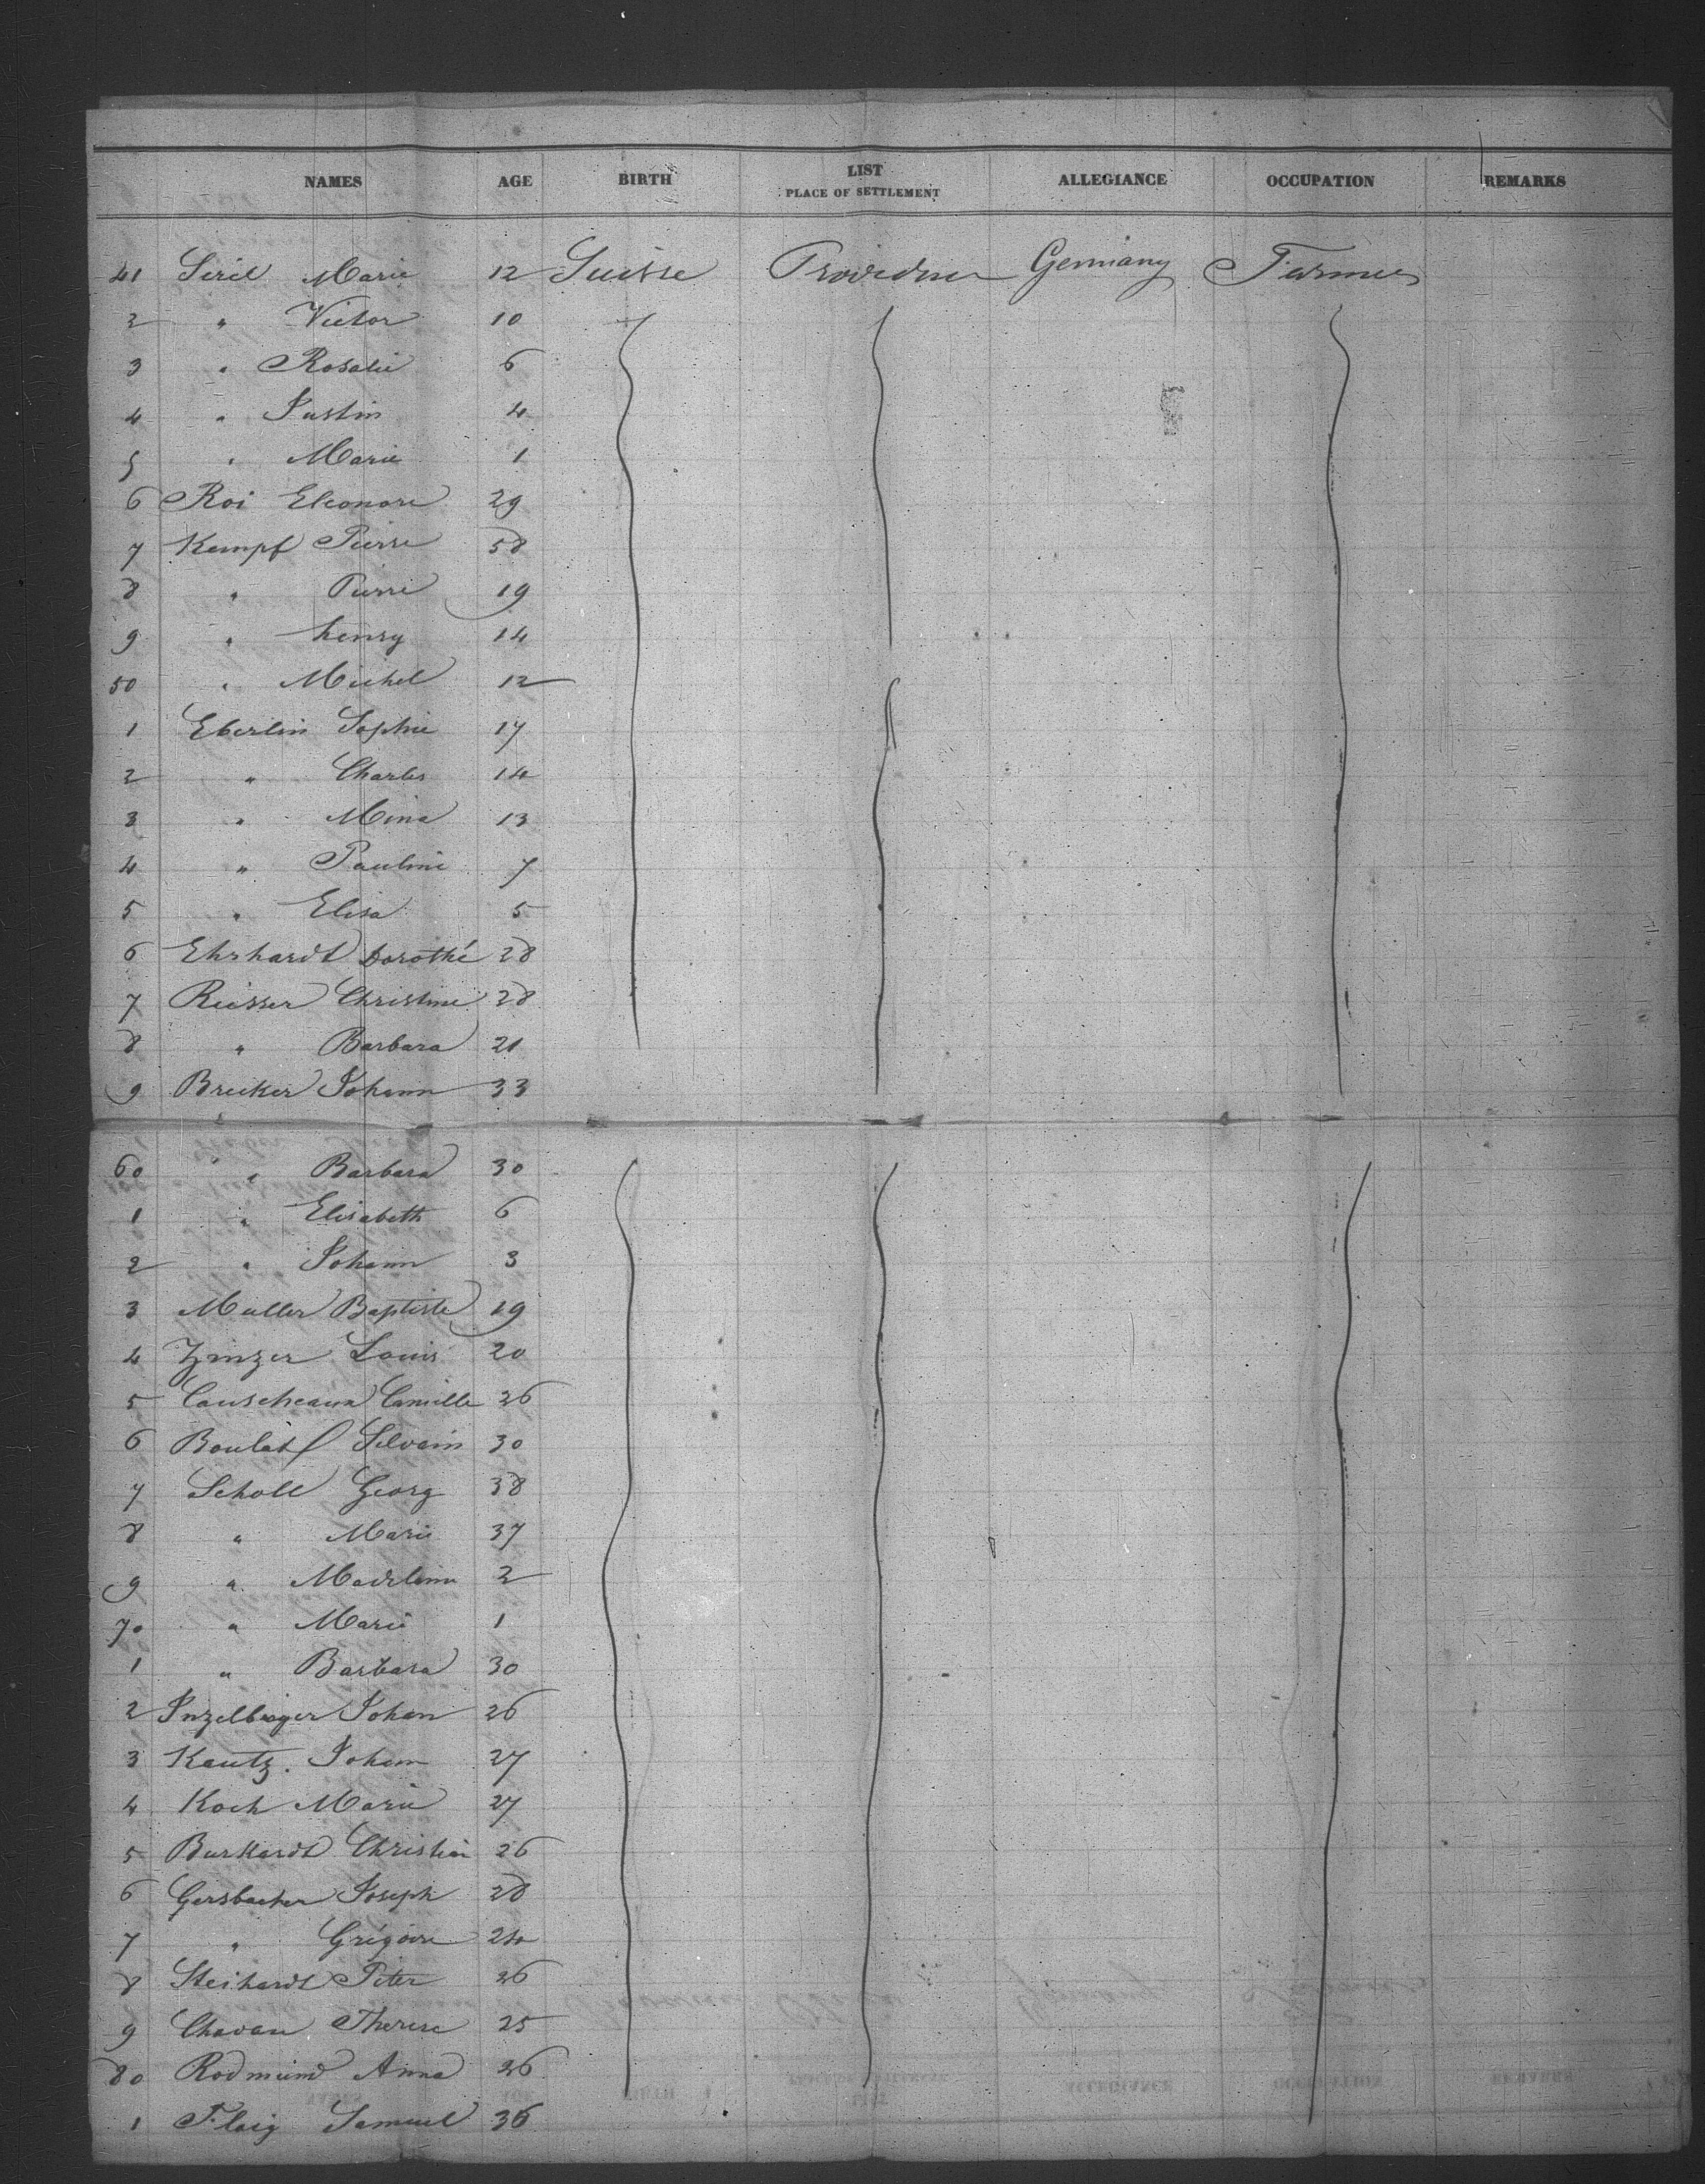 NAMES AGE BIRTH LIST PLACE OF SETTLEMENT ALLEGIANCE OCCUPATION REMARKS
41 Siril Marie 12 Suisse Providence Germany Farmer
2 " Victor 10
3 " Rosalie 6
4 " Justin 4
5 " Marie 1
6 Roi Eleonore 29
7 Kempf Pierre 58
8 " Pierre 19
9 " henry 14
50 " Michel 12
1 Eberlin Sophie 17
2 " Charles 14
3 " Mina 13
4 " Pauline 7
5 " Elisa 5
6 Ehrhardt Dorothé 28
7 Riesser Christine 28
8 " Barbara 21
9 Brecker Johann 33
60 " Barbara 30
1 " Elisabeth 6
2 " Johann 3
3 Muller Baptiste 19
4 Zinzer Louis 20
5 Causcheaux Camille 26
6 Boulat Silvain 30
7 Scholl Georg 38
8 " Marie 37
9 " Madeleine 2
70 " Marie 1
1 " Barbara 30
2 Inzelbinger Johan 26
3 Kautz. Johann 27
4 Koch Marie 27
5 Burkardt Christian 26
6 Gersbacher Joseph 28
7 " Grégoire 24
8 Steihardt Peter 26
9 Chavan Therese 25
80 Rodmund Anna 26
1 Flaig Samuel 36